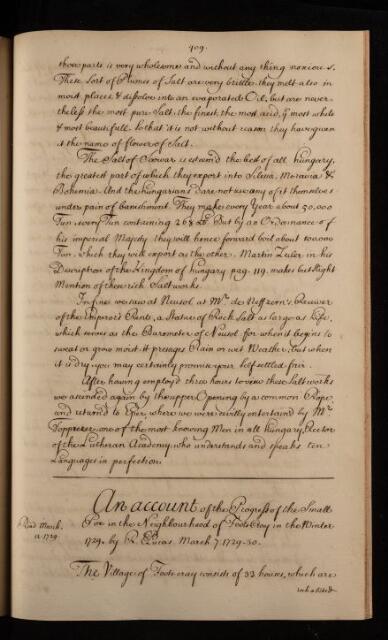 409.
those parts is very wholesome and without any thing noxious.
These sort of Plumes of Salt are very brittle, they melt also in
moist places & dissolve into an evaporated Oil, but are never-
theless the most pure Salt, the finest, the most acid, ye most white
& most beautifull. So that it is not without reason they have given
it the name of flower of Salt.
The Salt of Soowar is esteem'd the best of all hungary,
the greatest part of which they export into Silesia, Moravia &
Bohemia. And the hungarians dare not use any of it themselves
under pain of banishment. They make every Year about 50,000
Tun, every Tun containing 268 lb. But by an Ordonnance of
his imperial Majesty they will hence forward boil about 100000
Tun, which they will export as the other. Martin Zeiler in his
Description of the Kingdom of hungary pag. 119. makes but slight
Mention of these rich Salt works.
In fine we saw at Neusol at Mr. de Neffzern's Receiver
of the Emperor's Rents, a Statue of Rock Salt as large as Life,
which serves as the Barometer of Neusol for when it begins to
sweat or grow moist it presages Rain or wet Weather, but when
it is dry you may certainly promise your self settled fair.
After having employ'd three hours to view these Salt works
we ascended again by the upper Opening by a common Rope,
and return'd to Eper, where we were civilly entertain'd by Mr.
Topperzer one of the most knowing Men in all Hungary, Rector
of the Lutheran Academy, who understands and speaks ten
Languages in perfection.
An account of the Progress of the Small
Pox in the Neighbourhood of Foots Cray in the Winter
1729. by R. Lucas. March 7. 1729-30.
Read March
12. 1729
The Village of Foots cray consists of 33 houses, which are